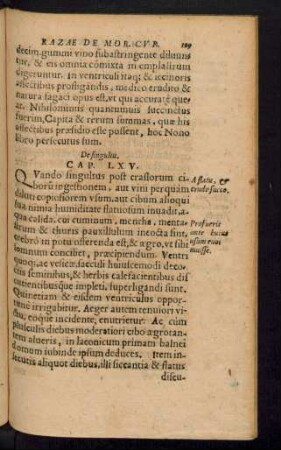 RAZAE DE MOR. CVR. 109
decim gummi vino subastringente diluun
tur, & eis omnia cōmixta in emplastrum
digeruntur. in ventriculi itaq; & iecinoris
affectibus profligandis, medico erudito &
natura sagaci opus est, vt qui accuratè quę
at. Nihilominus quantumuis succinctus
fuerim, Capita & rerum summas, quæ his
affectibus præsidio esse possent, hoc Nono
libro persecutus sum.
De singultu.
CAP. LXV.
QVando singultus post crassorum ci-
borū ingestionem, aut vini perquàm
dulcis copiosiorem vsum, aut cibum alioqui
sua nimia humiditate flatuosum inuadit, a-
qua calida, cui cuminum, mentha, menta-
strum & thuris pauxillulum incocta sint,
crebrò in potu offerenda est, & ægro, vt sibi
somnum conciliet, præcipiendum. Ventri
quoq;, ae vesicæ, sacculi huiuscemodi de co-
ctis seminibus, & herbis calefacientibus dis
cutientibúsque impleti, superligandi sunt.
Quinetiam & eisdem ventriculus oppor-
tunè irrigabitur. Aeger autem tenuiori vi-
ctu, eoque incidente, enutrietur. Ac cùm
plusculis diebus moderatiori cibo ægrotan-
tem alueris, in laconicum primam balnei
domum inibi de ipsum deduces. Item in-
secutis aliquot diebus, illi siccantia & flatus
discu-
A flatu, &
crudo succo.
Profuerit
ante huius
usum vo-
muisse.